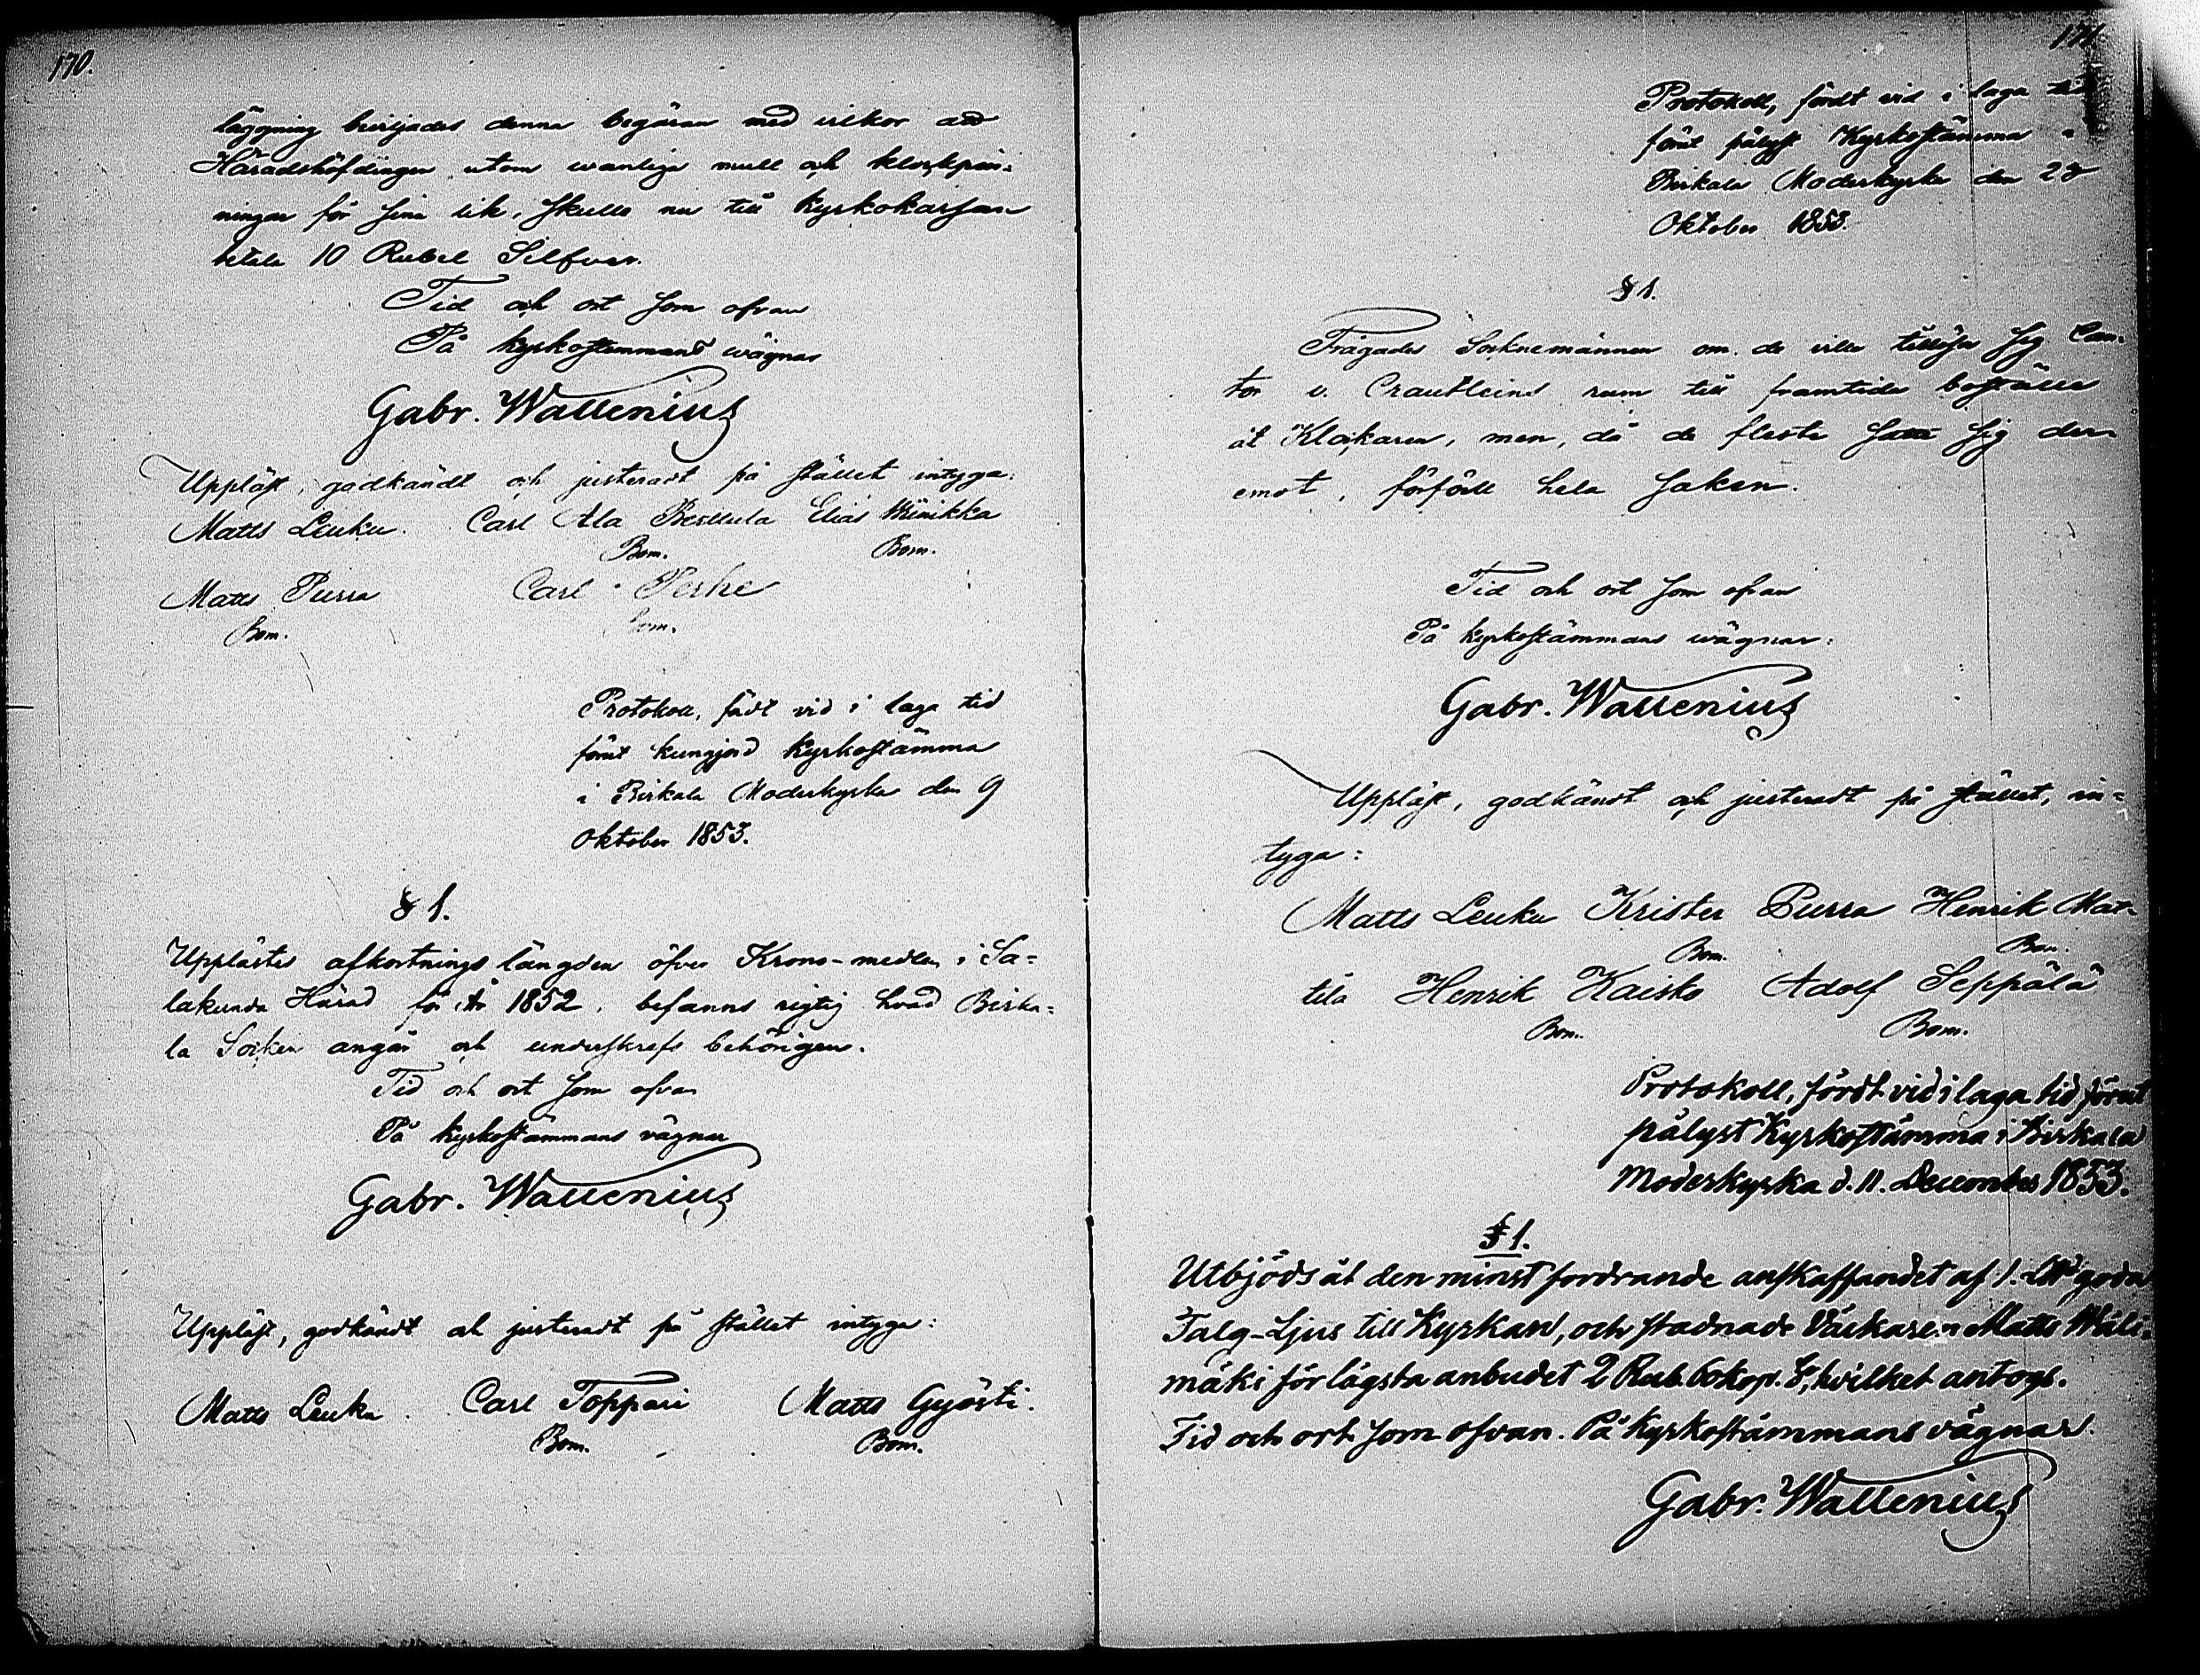 170.
läggning beviljades denna begäran med vilkor att
Häradshöfdingen utom wanliga mull och klockpen-
ningar för sina lik, skulle nu till kyrkokassan
betala 10 Rubel Silfver.
Tid och ort som ofvan
På kyrkostämmans wägnar
Gabr. Wallenius
Uppläst, godkändt och justeradt på stället intyga:
Matts Leuku. Carl Ala Elias Minikka
Bom. Bom.
Matts Purra Carl Perhe
Bom. Bom.
Protokoll, fördt vid i laga tid
förut kungjord kyrkostämma
i Birkala Moderkyrka den 9
Oktober 1853.
§ 1.
Upplästes afkortnings längden öfver Krono-medlen i Sa-
takunda Härad för År 1852, befanns rigtig hvad Birka-
la Socken angår och underskrefs behörigen.
Tid och ort som ofvan
På kyrkostämmans vägnar
Gabr. Wallenius
Uppläst, godkändt och justeradt på stället intyga:
Matts Leuku. Carl Toppari Matts Gyösti.
Bom. Bom.
171
Protokoll, fördt vid i laga tid
förut pålyst Kyrkostämma i
Birkala Moderkyrka den 28
Oktober 1853.
§ 1.
Frågades Socknemännen om de ville tillösa sig Can-
tor v. Crautleins rum till framtida boställe
åt Klåckaren, men, då de fleste satte sig der-
emot, förföll hela saken.
Tid och ort som ofvan
På kyrkostämmans wägnar:
Gabr. Wallenius
Uppläst, godkändt och justeradt på stället, in-
tyga:
Matts Leuku Krister Purra Henrik Mat-
Bom. Bom.
tila Henrik Kaisko Adolf Seppälä
Bom. Bom.
Protokoll, fördt vid i laga tid förut
pålyst Kyrkostämma i Birkala
Moderkyrka d. 11. December 1853.
§ 1.
Utbjöds åt den minst fordrande anskaffandet af 1. goda
Talg-Ljus till Kyrkan, och stadnade Väckaren Matts Wäli-
mäki för lägsta anbudet 2 Rub. 60 kop. S, hvilket antogs.
Tid och ort som ofvan. På Kyrkostämmans vägnar.
Gabr. Wallenius